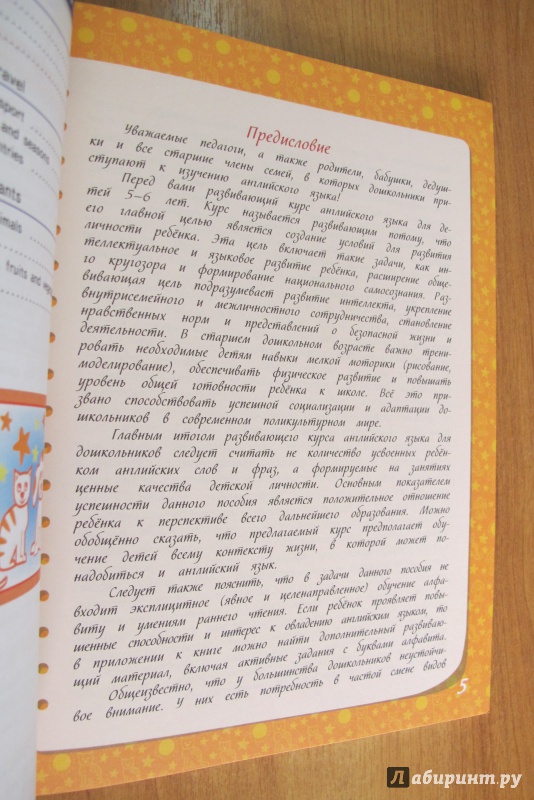 ravel
port
and seasons
tries
ants
imals
fruits and vege
Предисловие
Уважаемые педагоги, а также родители, бабушки, дедуш-
ки и все старшие члены семей, в которых дошкольники при-
ступают к изучению английского языка!
Перед вами развивающий курс английского языка для де-
тей 5–6 лет. Курс называется развивающим потому, что
его главной целью является создание условий для развития
личности ребёнка. Эта цель включает такие задачи, как ин-
теллектуальное и языковое развитие ребёнка, расширение обще-
го кругозора и формирование национального самосознания. Раз-
вивающая цель подразумевает развитие интеллекта, укрепление
внутрисемейного и межличностного сотрудничества, становление
нравственных норм и представлений о безопасной жизни и
деятельности. В старшем дошкольном возрасте важно трени-
ровать необходимые детям навыки мелкой моторики (рисование,
моделирование), обеспечивать физическое развитие и повышать
уровень общей готовности ребёнка к школе. Всё это при-
звано способствовать успешной социализации и адаптации до-
школьников в современном поликультурном мире.
Главным итогом развивающего курса английского языка для
дошкольников следует считать не количество усвоенных ребён-
ком английских слов и фраз, а формируемые на занятиях
ценные качества детской личности. Основным показателем
успешности данного пособия является положительное отношение
ребёнка к перспективе всего дальнейшего образования. Можно
обобщённо сказать, что предлагаемый курс предполагает обу-
чение детей всему контексту жизни, в которой может по-
надобиться и английский язык.
Следует также пояснить, что в задачи данного пособия не
входит эксплицитное (явное и целенаправленное) обучение алфа-
виту и умениям раннего чтения. Если ребёнок проявляет повы-
шенные способности и интерес к овладению английским языком, то
в приложении к книге можно найти дополнительный развиваю-
щий материал, включая активные задания с буквами алфавита.
Общеизвестно, что у большинства дошкольников неустойчи-
вое внимание. у них есть потребность в частой смене видов
5
Лабиринт.ру